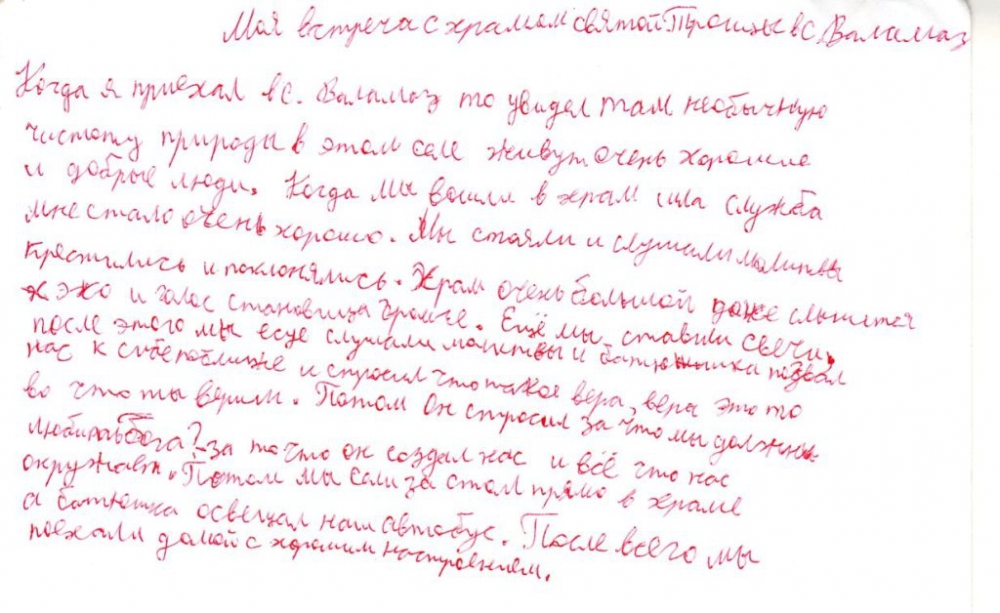 Моя встреча с храмом святой Троицы в с. Валамаз
Когда я приехал в с. Валамаз то увидел там необычную
чистоту природы в этом селе живут очень хорошие
и добрые люди. Когда мы вошли в храм шла служба
мне стало очень хорошо. Мы стояли и слушали молитвы
крестились и поклонялись. Храм очень большой даже слышется
эхо и голос становица громче. Ещё мы ставили свечи,
после этого мы есде слушали молитвы и батюшка позвал
нас к себе поближе и спросил что такое вера, вера это то
во что ты верим. Потом он спросил за что мы должны
любить бога? -за то что он создал нас и всё что нас
окружает. Потом мы сели за стол прямо в храме
а батюшка освещал наш автобус. После всего мы
поехали домой с хорошим настроением.